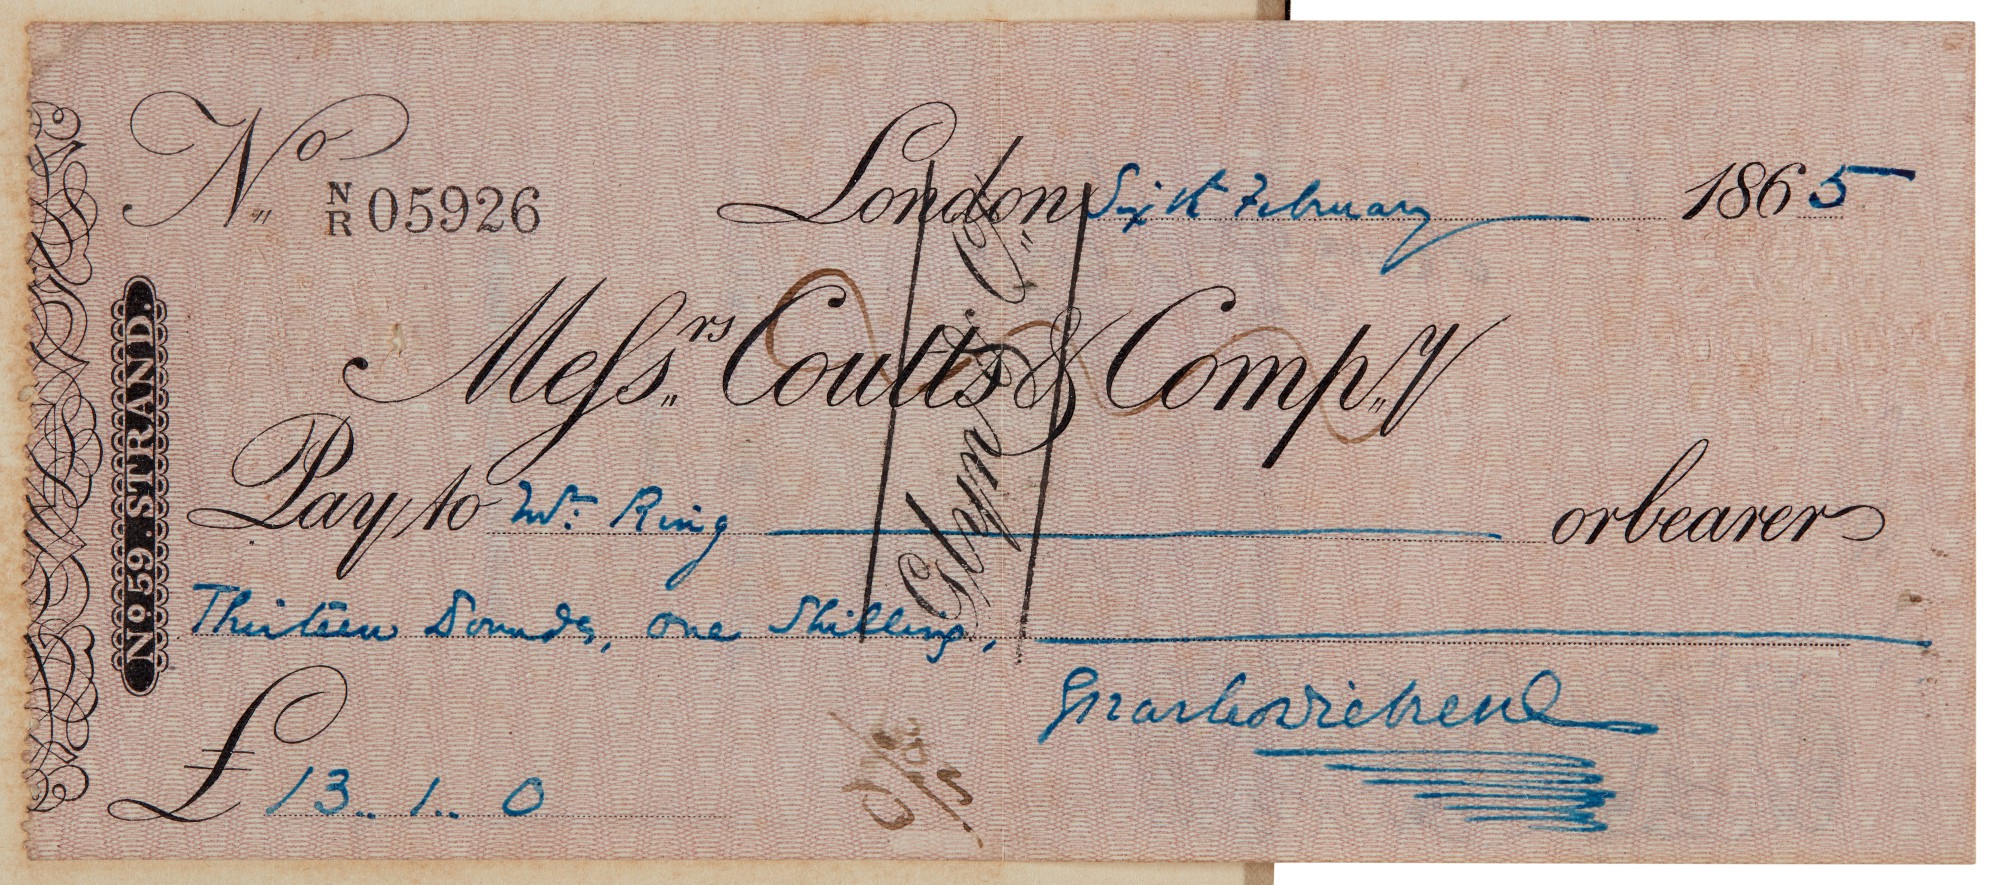 No. N/R 05926
London Sixth February 1865
Messrs. Coutts & Compy.
Pay to Mr. Ring or bearer
Thirteen Pounds, one Shilling,
Charles Dickens
£ 13..1..0
No. 59. STRAND.
Glyn & Co.